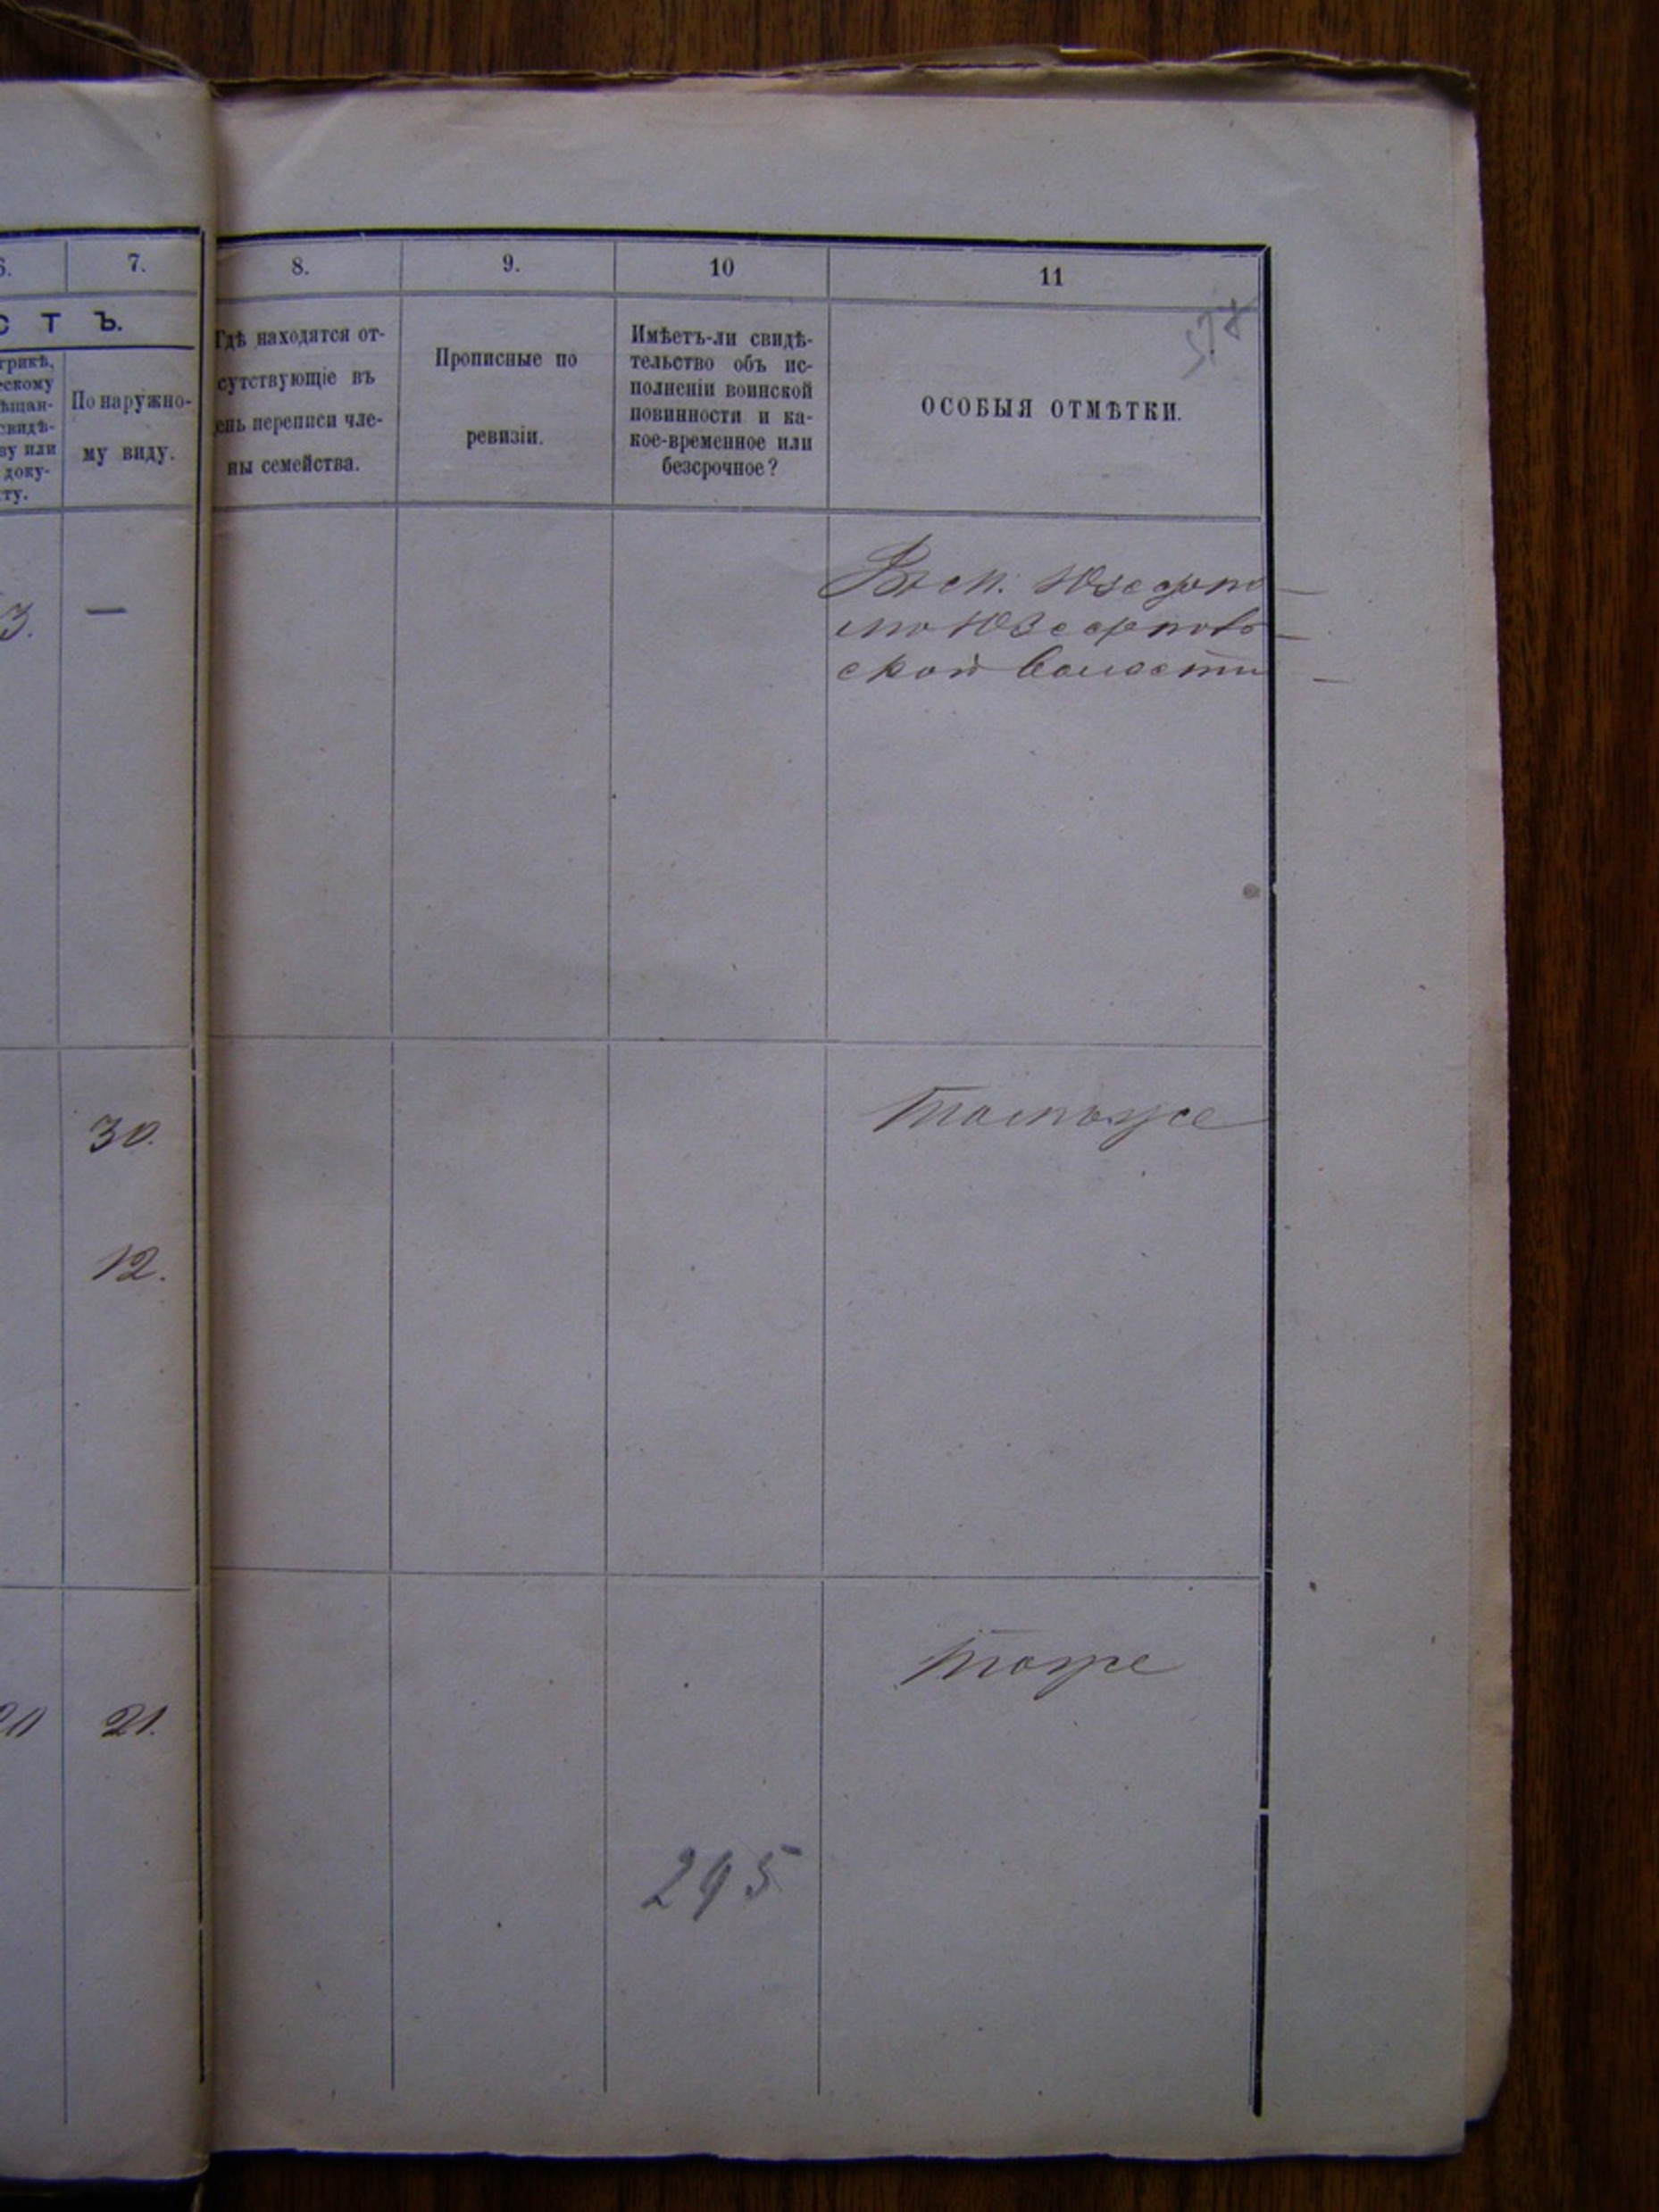 6.
7.
8.
9.
10
11
СТЪ.
трикѣ,
ескому
ѣщан-
свидѣ-
ву или
доку-
ту.
По наружно-
му виду.
Гдѣ находятся от-
сутствующіе въ
ень переписи чле-
ны семейства.
Прописные по
ревизіи.
Имѣетъ-ли свидѣ-
тельство объ ис-
полненіи воинской
повинности и ка-
кое-временное или
безсрочное?
ОСОБЫЯ ОТМѢТКИ.
3.
—
ской волости
30.
12.
тоже
21.
295